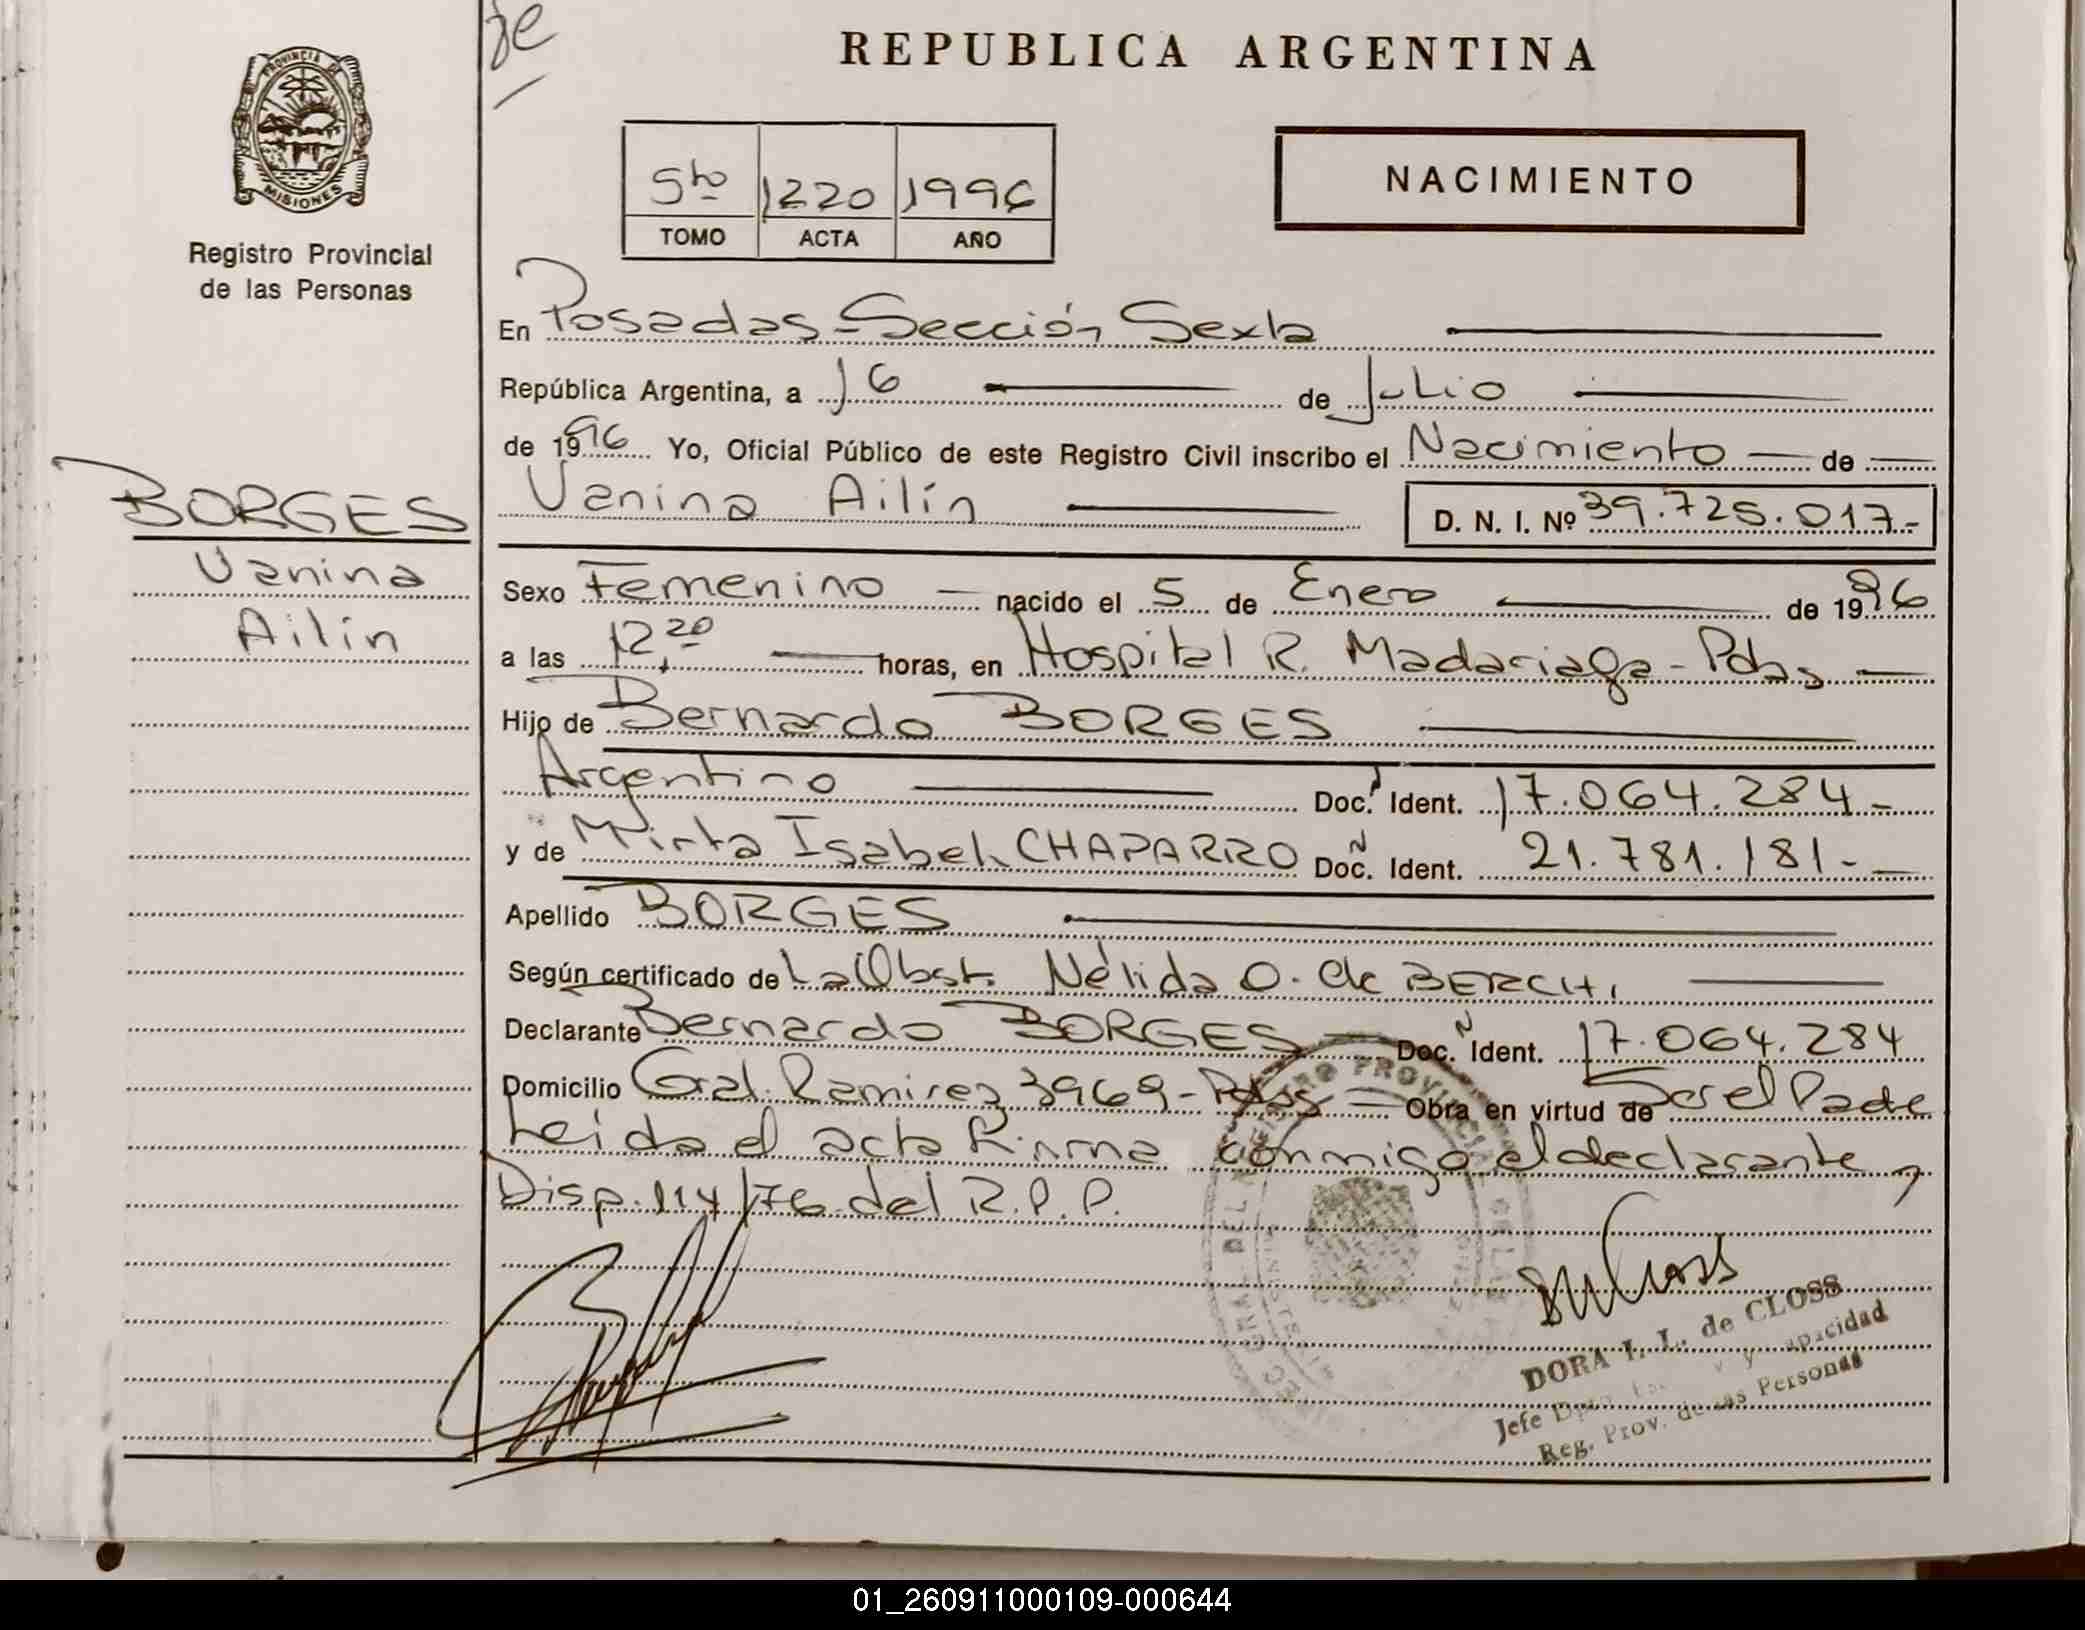 REPUBLICA ARGENTINA
PROVINCIA DE
MISIONES
Registro Provincial
de las Personas
5to 1220 1996
TOMO ACTA AÑO
NACIMIENTO
En Posadas - Sección Sexta
República Argentina, a 16 de Julio
de 1996 Yo, Oficial Público de este Registro Civil inscribo el Nacimiento de
Vanina Ailín D. N. I. Nº 39.725.017.-
BORGES
Vanina
Ailín
Sexo Femenino nacido el 5 de Enero de 1996
a las 12,20 horas, en Hospital R. Madariaga - Pdas
Hijo de Bernardo BORGES
Argentino Doc. Ident. 17.064.284.-
y de Mirta Isabel CHAPARRO Doc. Ident. 21.781.181.-
Apellido BORGES
Según certificado de La Obst. Nélida O. de BERCHI
Declarante Bernardo BORGES Doc. Ident. 17.064.284
Domicilio Gral. Ramirez 3969 - Pdas Obra en virtud de Ser el Padre
Leida el acta Firma conmigo el declarante,
Disp. 114/76 del R.P.P.
DORA I. L. de CLOSS
Jefe Dpto. y Capacidad
Reg. Prov. de las Personas
01_260911000109-000644